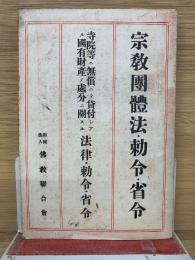 宗敎團體法・勅令・省令
寺院等ニ無償ニテ貸付シアル國有財產ノ處分ニ關スル
法律・勅令・省令
財團法人
佛敎聯合會